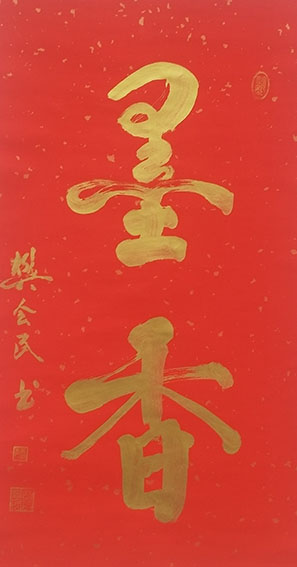 墨香
樊会民书